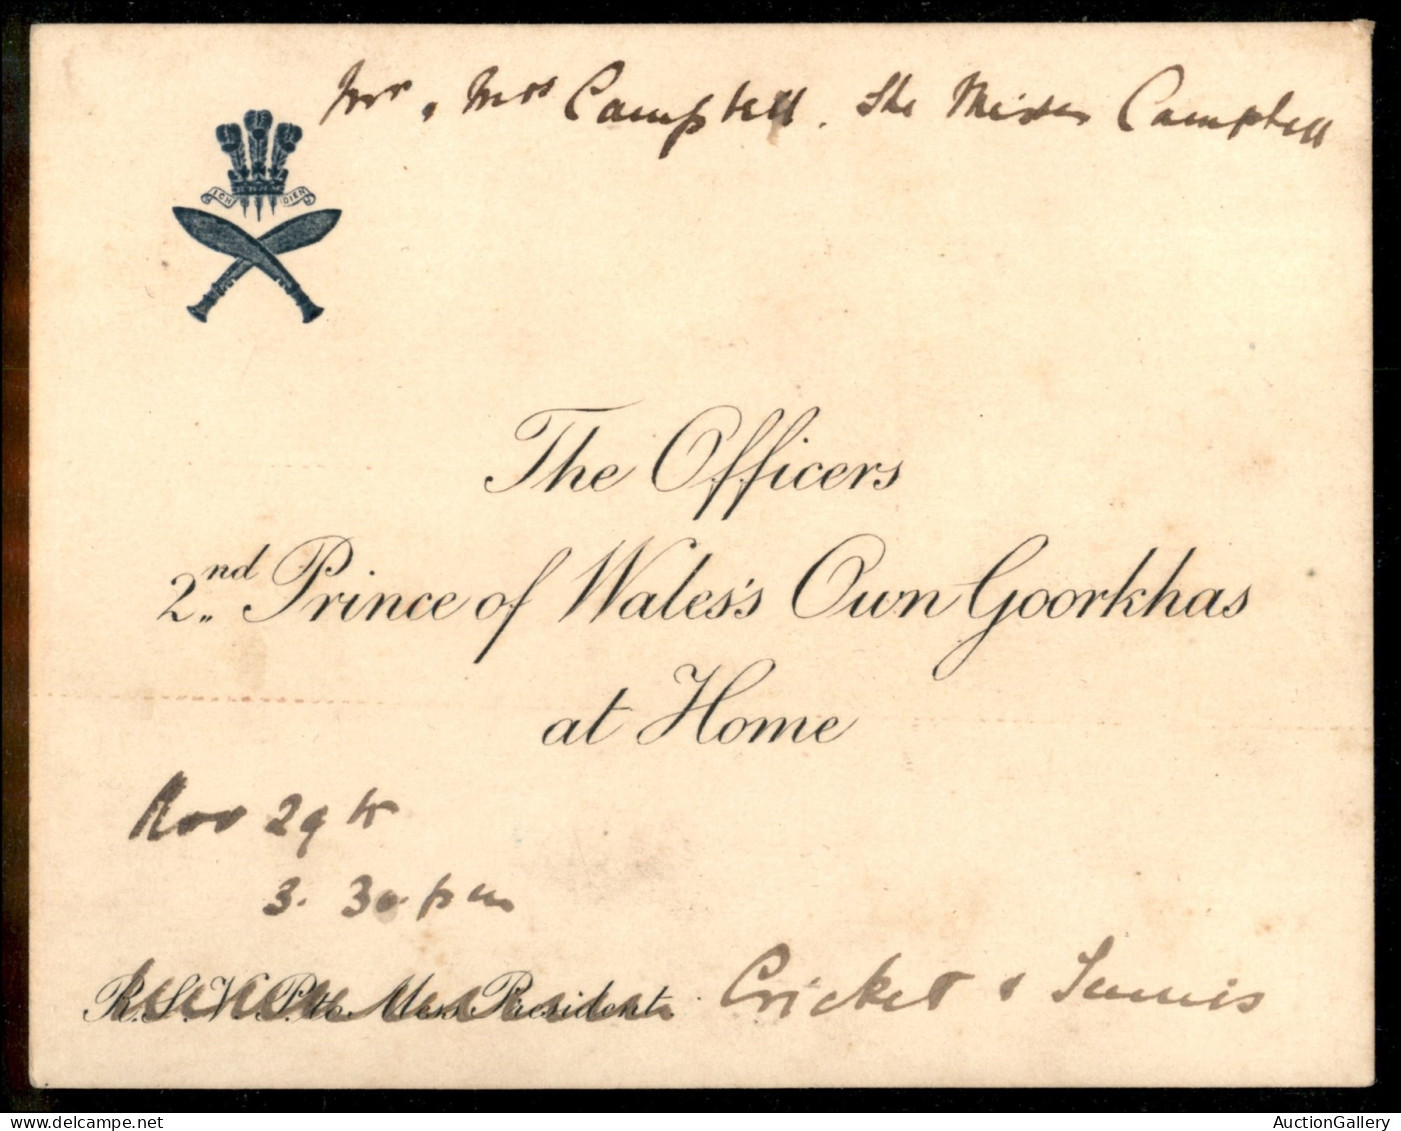 Mr & Mrs Campbell. The Misses Campbell
ICH DIEN
The Officers
2nd Prince of Wales's Own Goorkhas
at Home
Nov 29th
3.30.pm
R.S.V.P. to Mess President. Cricket & Tennis
www.delcampe.net
AuctionGallery